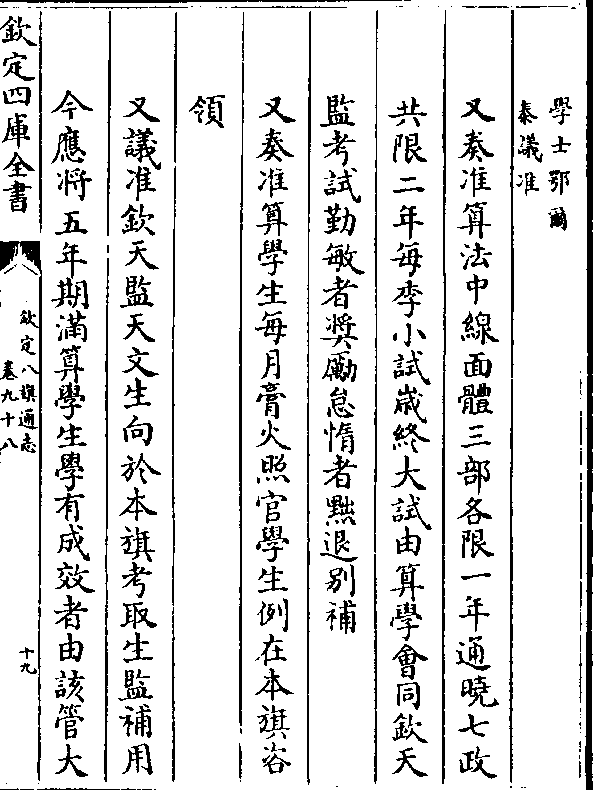 學士鄂爾
泰議准
又奏准算法中線面體三部各限一年通曉七政
共限二年每季小試嵗終大試由算學會同欽天
監考試勤敏者奨勵怠惰者黜退别補
又奏准算學生每月膏火照官學生例在本旗咨
領
又議准欽天監天文生向於本旗考取生監補用
今應將五年期滿算學生學有成效者由該管大
欽定四庫全書
欽定八旗通志
卷九十八
十九